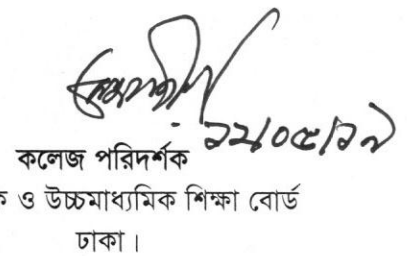 ২২/০৫/১৯
কলেজ পরিদর্শক
ক ও উচ্চমাধ্যমিক শিক্ষা বোর্ড
ঢাকা।